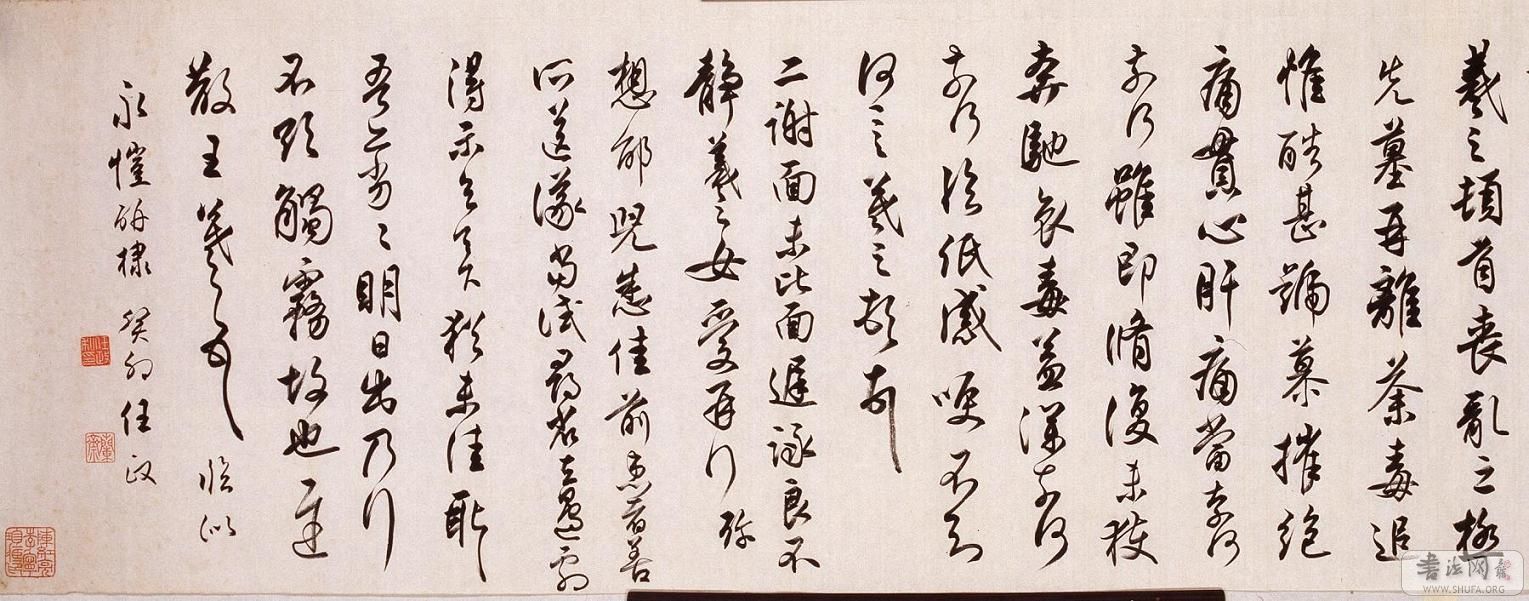 羲之頓首喪亂之極
先墓再離荼毒追
惟酷甚號慕摧絕
痛貫心肝痛當奈何
奈何雖即脩復未獲
奔馳哀毒益深奈何
奈何臨紙感哽不知
何言羲之頓首
二謝面未比面遲詠良不
靜羲之女愛再拜
想邰兒悉佳前患者善
所送議當試尋省左邊劇
得示知足下猶未佳耿
吾亦劣々明日出乃行
不欲觸霧故也遲
散王羲之頓首 臨似
永愷研棣 癸卯任政
书法网
WWW.SHUFA.ORG